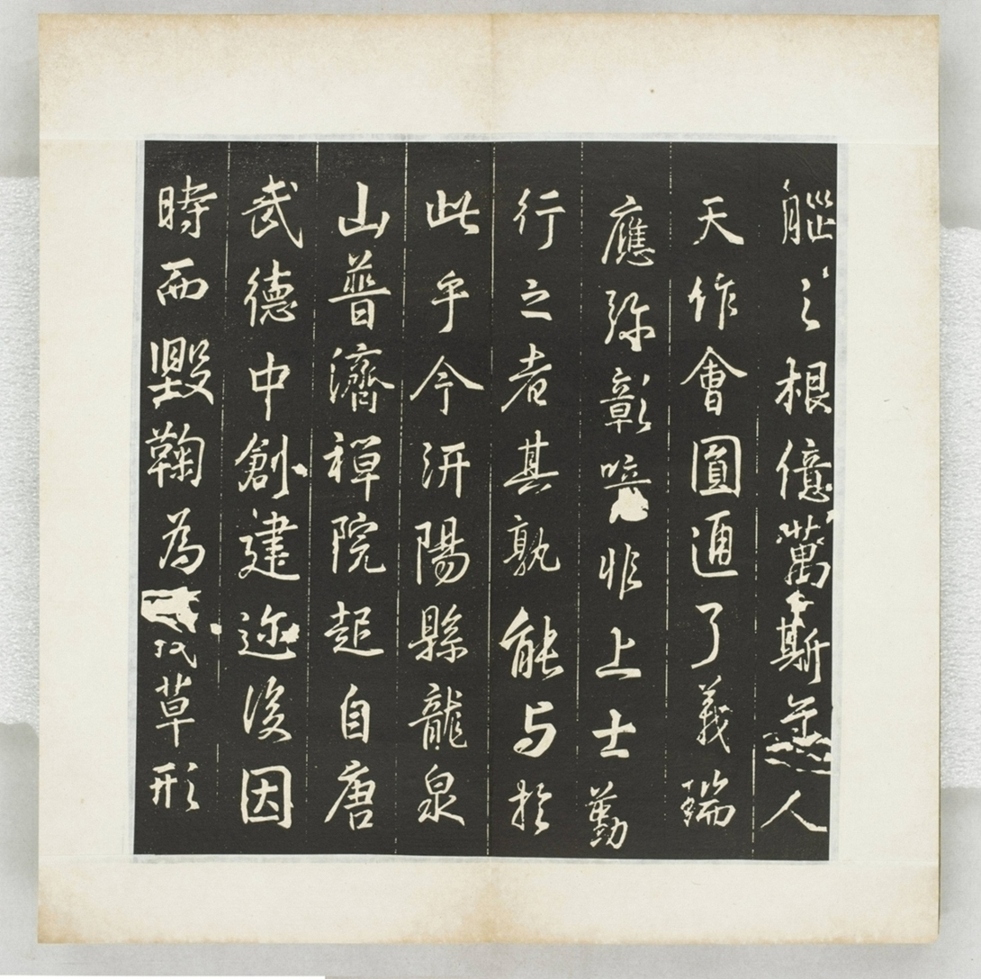 之根億萬斯人
天作會圓通了義瑞
應弥彰非上士勤
行之者其孰能与於
此乎今汧陽縣龍泉
山普濟禪院起自唐
武德中創建迩後因
時而毀鞠為茂草形